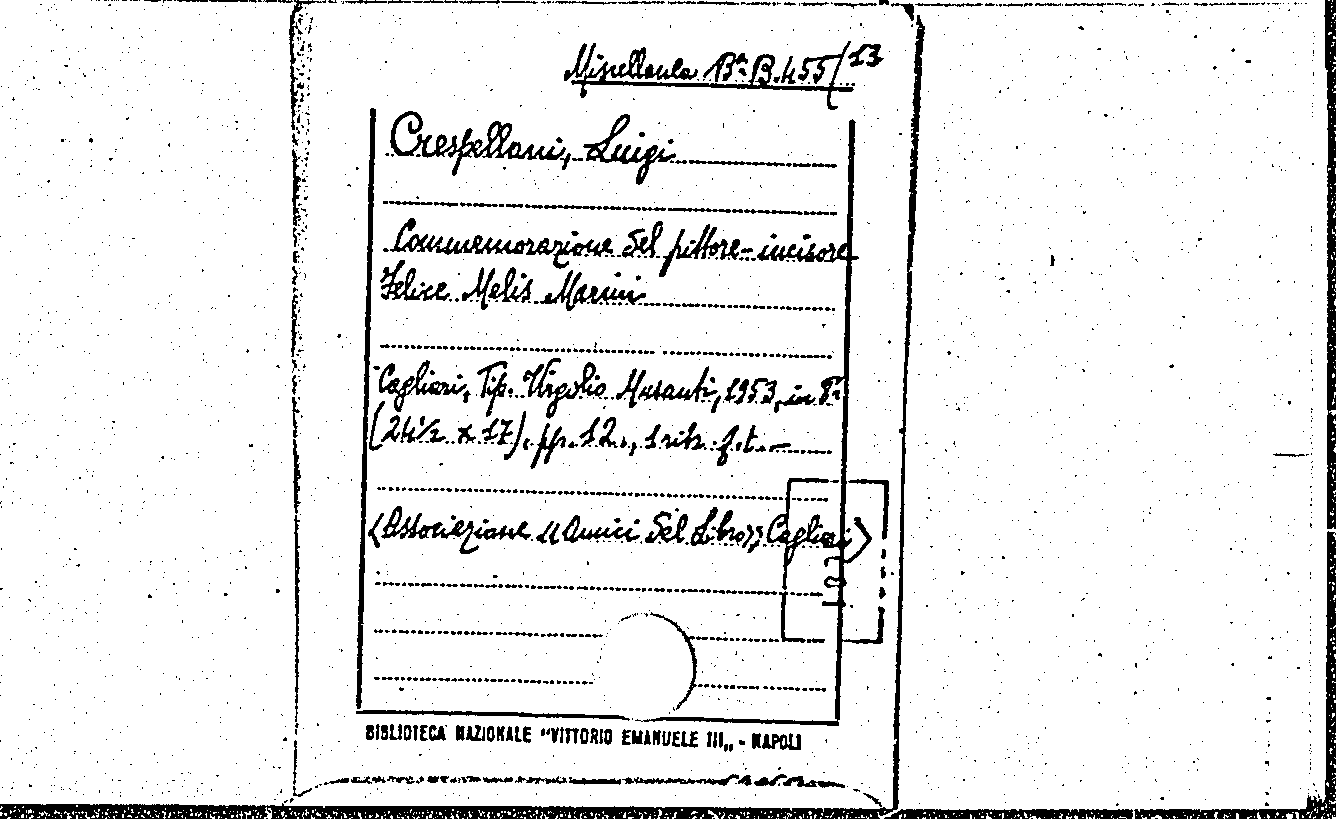 Miscellanea Bª B.455/13
Crespellani, Luigi
Commemorazione del pittore-incisore
Felice Melis Marini
Cagliari, Tip. Virgilio Musanti, 1953, in 8º
(24½ x 17). pp. 12., 1 ritr. f.t. —
<Associazione «Amici del Libro», Cagliari>
BIBLIOTECA NAZIONALE "VITTORIO EMANUELE III„ - NAPOLI